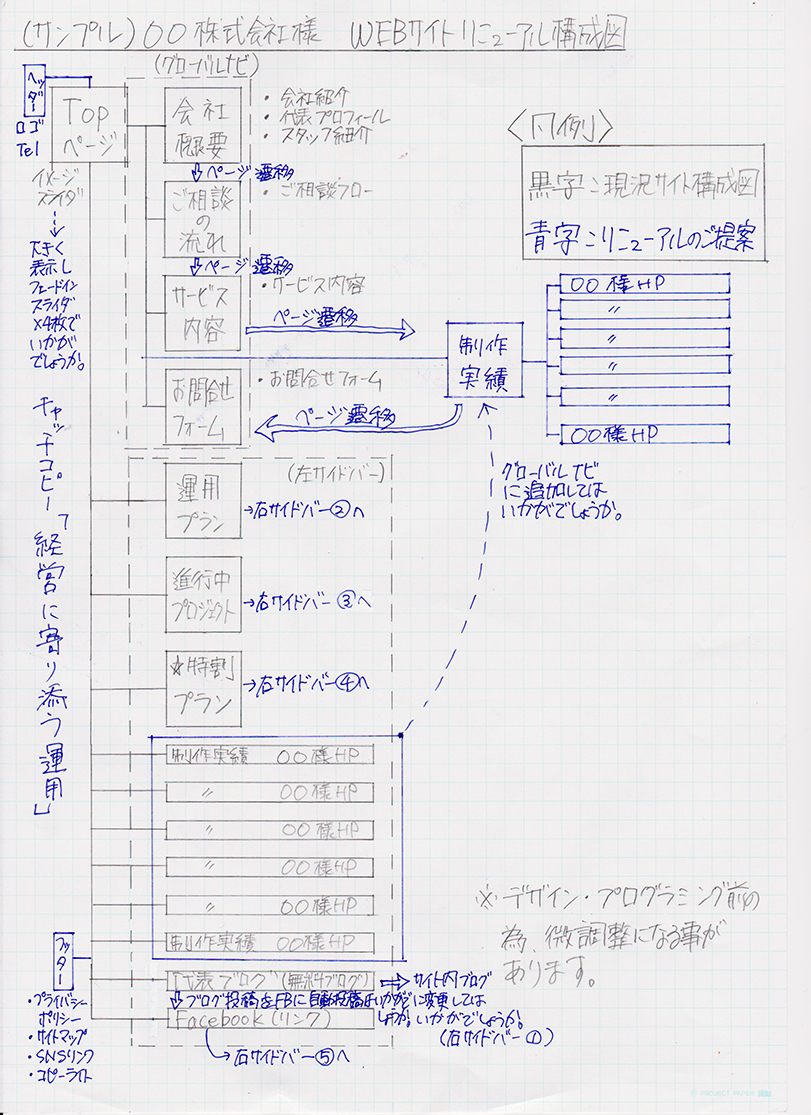 (サンプル)〇〇株式会社様 WEBサイトリニューアル構成図
(グローバルナビ)
ヘッダー
ロゴ
Tel
Top
ページ
イメージ
スライダ
大きく
表示し
フェードイン
スライダ
×4枚で
いかが
でしょうか。
キャッチコピー「経営に寄り添う運用」
会社
概要
・会社紹介
・代表プロフィール
・スタッフ紹介
⇩ページ遷移
ご相談
の
流れ
・ご相談フロー
⇩ページ遷移
サービス
内容
・サービス内容
ページ遷移
お問合せ
フォーム
・お問合せフォーム
ページ遷移
〈凡例〉
黒字:現況サイト構成図
青字:リニューアルのご提案
制作
実績
〇〇様HP
〃
〃
〃
〃
〇〇様HP
グローバルナビ
に追加しては
いかがでしょうか。
(左サイドバー)
運用
プラン
→右サイドバー②へ
進行中
プロジェクト
→右サイドバー③へ
☆特割
プラン
→右サイドバー④へ
制作実績 〇〇様HP
〃 〇〇様HP
〃 〇〇様HP
〃 〇〇様HP
〃 〇〇様HP
制作実績 〇〇様HP
代表ブログ(無料ブログ)
⇨サイト内ブログ
に変更しては
いかがでしょうか。
(右サイドバー①)
⇩ブログ投稿をFBに自動投稿はいかがで
しょうか。
Facebook(リンク)
→右サイドバー⑤へ
フッター
・プライバシー
ポリシー
・サイトマップ
・SNSリンク
・コピーライト
※デザイン・プログラミング前の
為、微調整になる事が
あります。
PROJECT PAPER